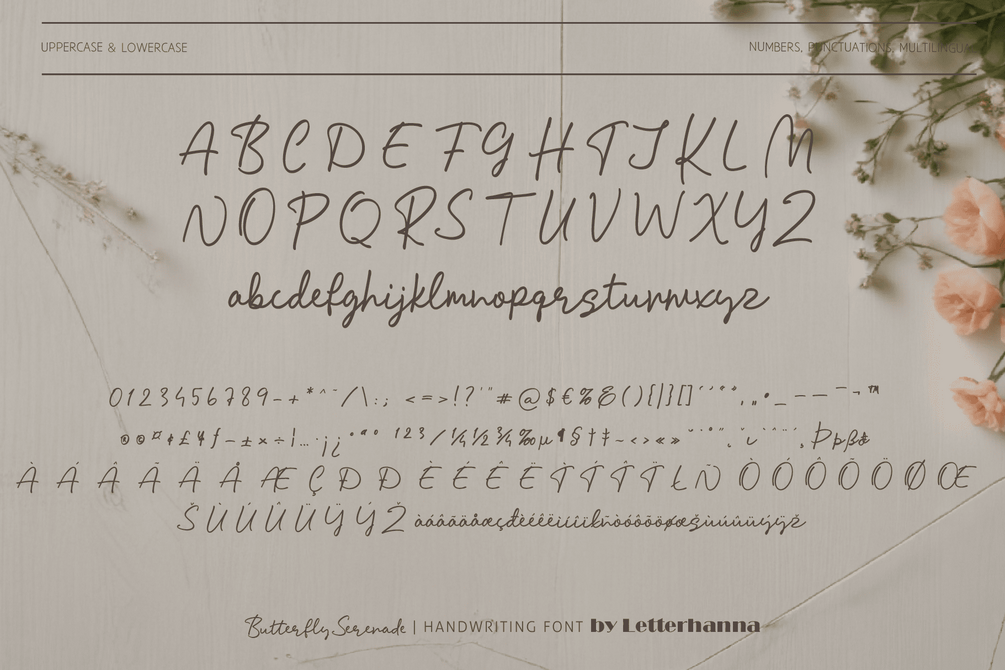 UPPERCASE & LOWERCASE
NUMBERS, PUNCTUATIONS, MULTILINGUAL
ABCDEFGHIJKLM
NOPQRSTUVWXYZ
abcdefghijklmnopqrstuvwxyz
0123456789-+*^~/\:;<=>!?'"#@$€%&(){|}[]‘’“”,„•_——¯¬™
©®¤¢£¥ƒ–±×÷¦…·¡¿°ªº123/¼½¾‰µ¶§†‡~‹›«»
ÀÁÂÃÄÅÆÇÐĐÈÉÊËÌÍÎÏŁÑÒÓÔÕÖØŒ
ŠÙÚÛÜÝŸŽàáâãäåæçđèéêëìíîïłñòóôõöøœšùúûüýÿž
Butterfly Serenade | HANDWRITING FONT by Letterhanna